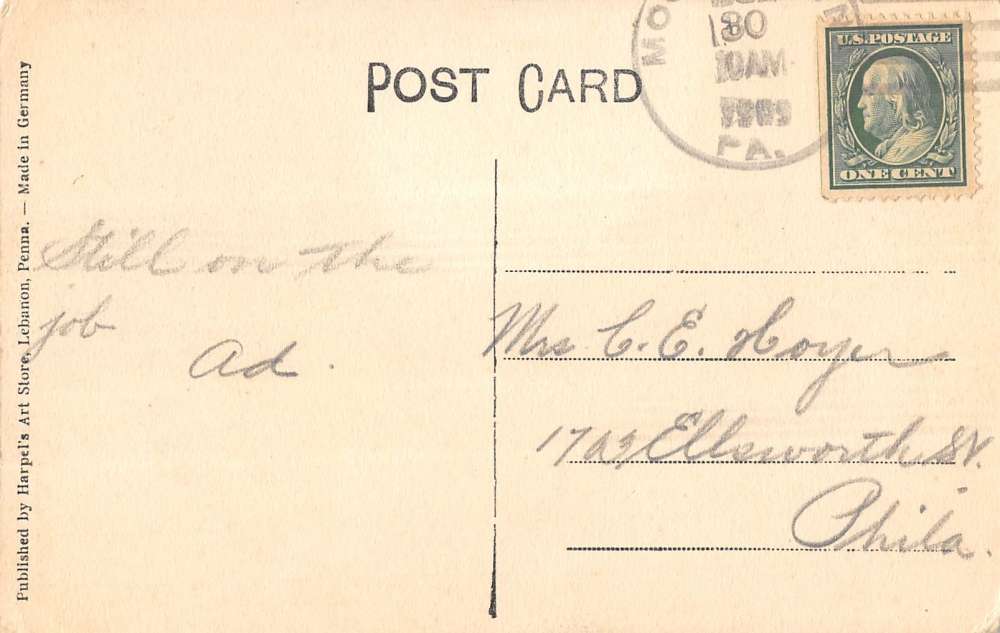 POST CARD
30
10AM
1909
PA.
U.S. POSTAGE
ONE CENT
Published by Harpel's Art Store, Lebanon, Penna. — Made in Germany
Still on the
job
Ad.
Mrs C. E. Hoyer
Ellsworth St.
Phila.